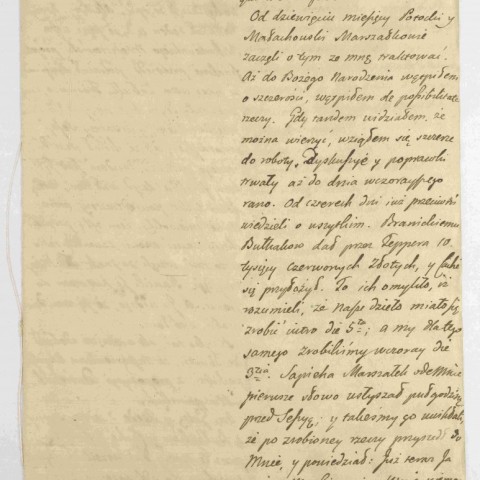 Od dziewięciu miesięcy Potocki y
Małachowski Marszałkowie
zaczęli o tym ze mną traktować.
Aż do Bożego Narodzenia wątpiłem
o szczerości, wątpiłem de possibilitate
rzeczy. Gdy tandem widziałem, że
można wierzyć, wziąłem się szczerze
do roboty. Dyskussye y poprawki
trwały aż do dnia wczorayszego
rano. Od czterech dni iuż przeciwni
wiedzieli o wszytkim. Branickiemu
Bułhakow dał przez Teppera 10
tysięcy czerwonych złotych, y
się przydożył. To ich omyliło, iż
rozumieli, że nasze dzieło miało się
zrobić iutro die 5ta; a my dla tego
samego zrobiliśmy wczoray die
3tia. Sapieha Marszałek odemnie
pierwsze słowo usłyszał puł godziny
przed Sessyą; y takeśmy go
że po zrobioney rzeczy przyszedł do
Mnie, y powiedział: Już teraz Ja